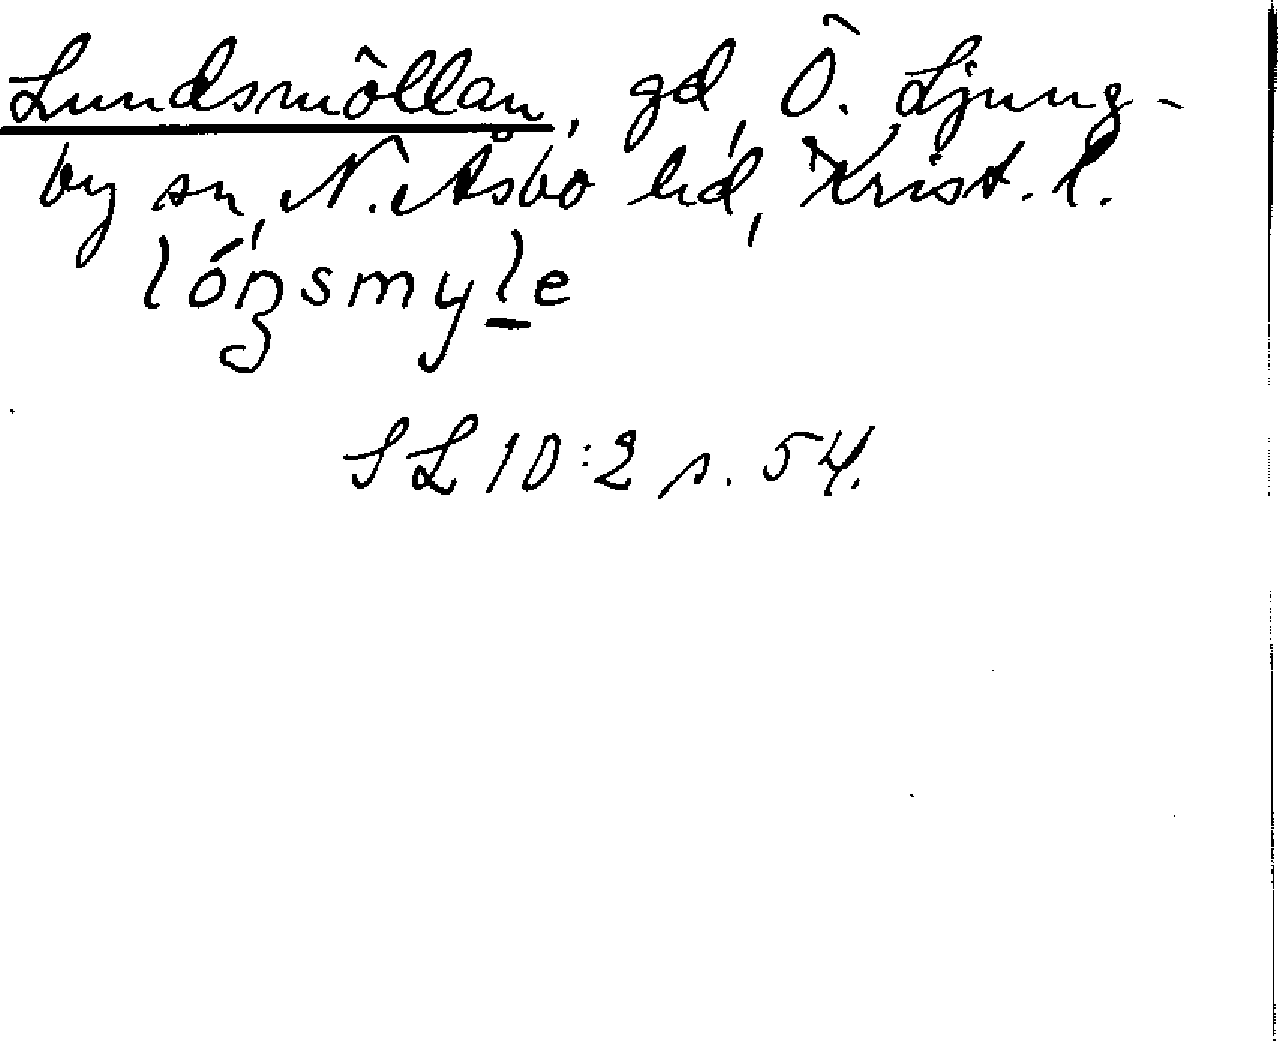 Lundsmöllan, gd, Ö. Ljung-
by sn, N. Åsbo hd, Krist. l.
lóŋsmyl̲e
SL 10:2 s. 54.